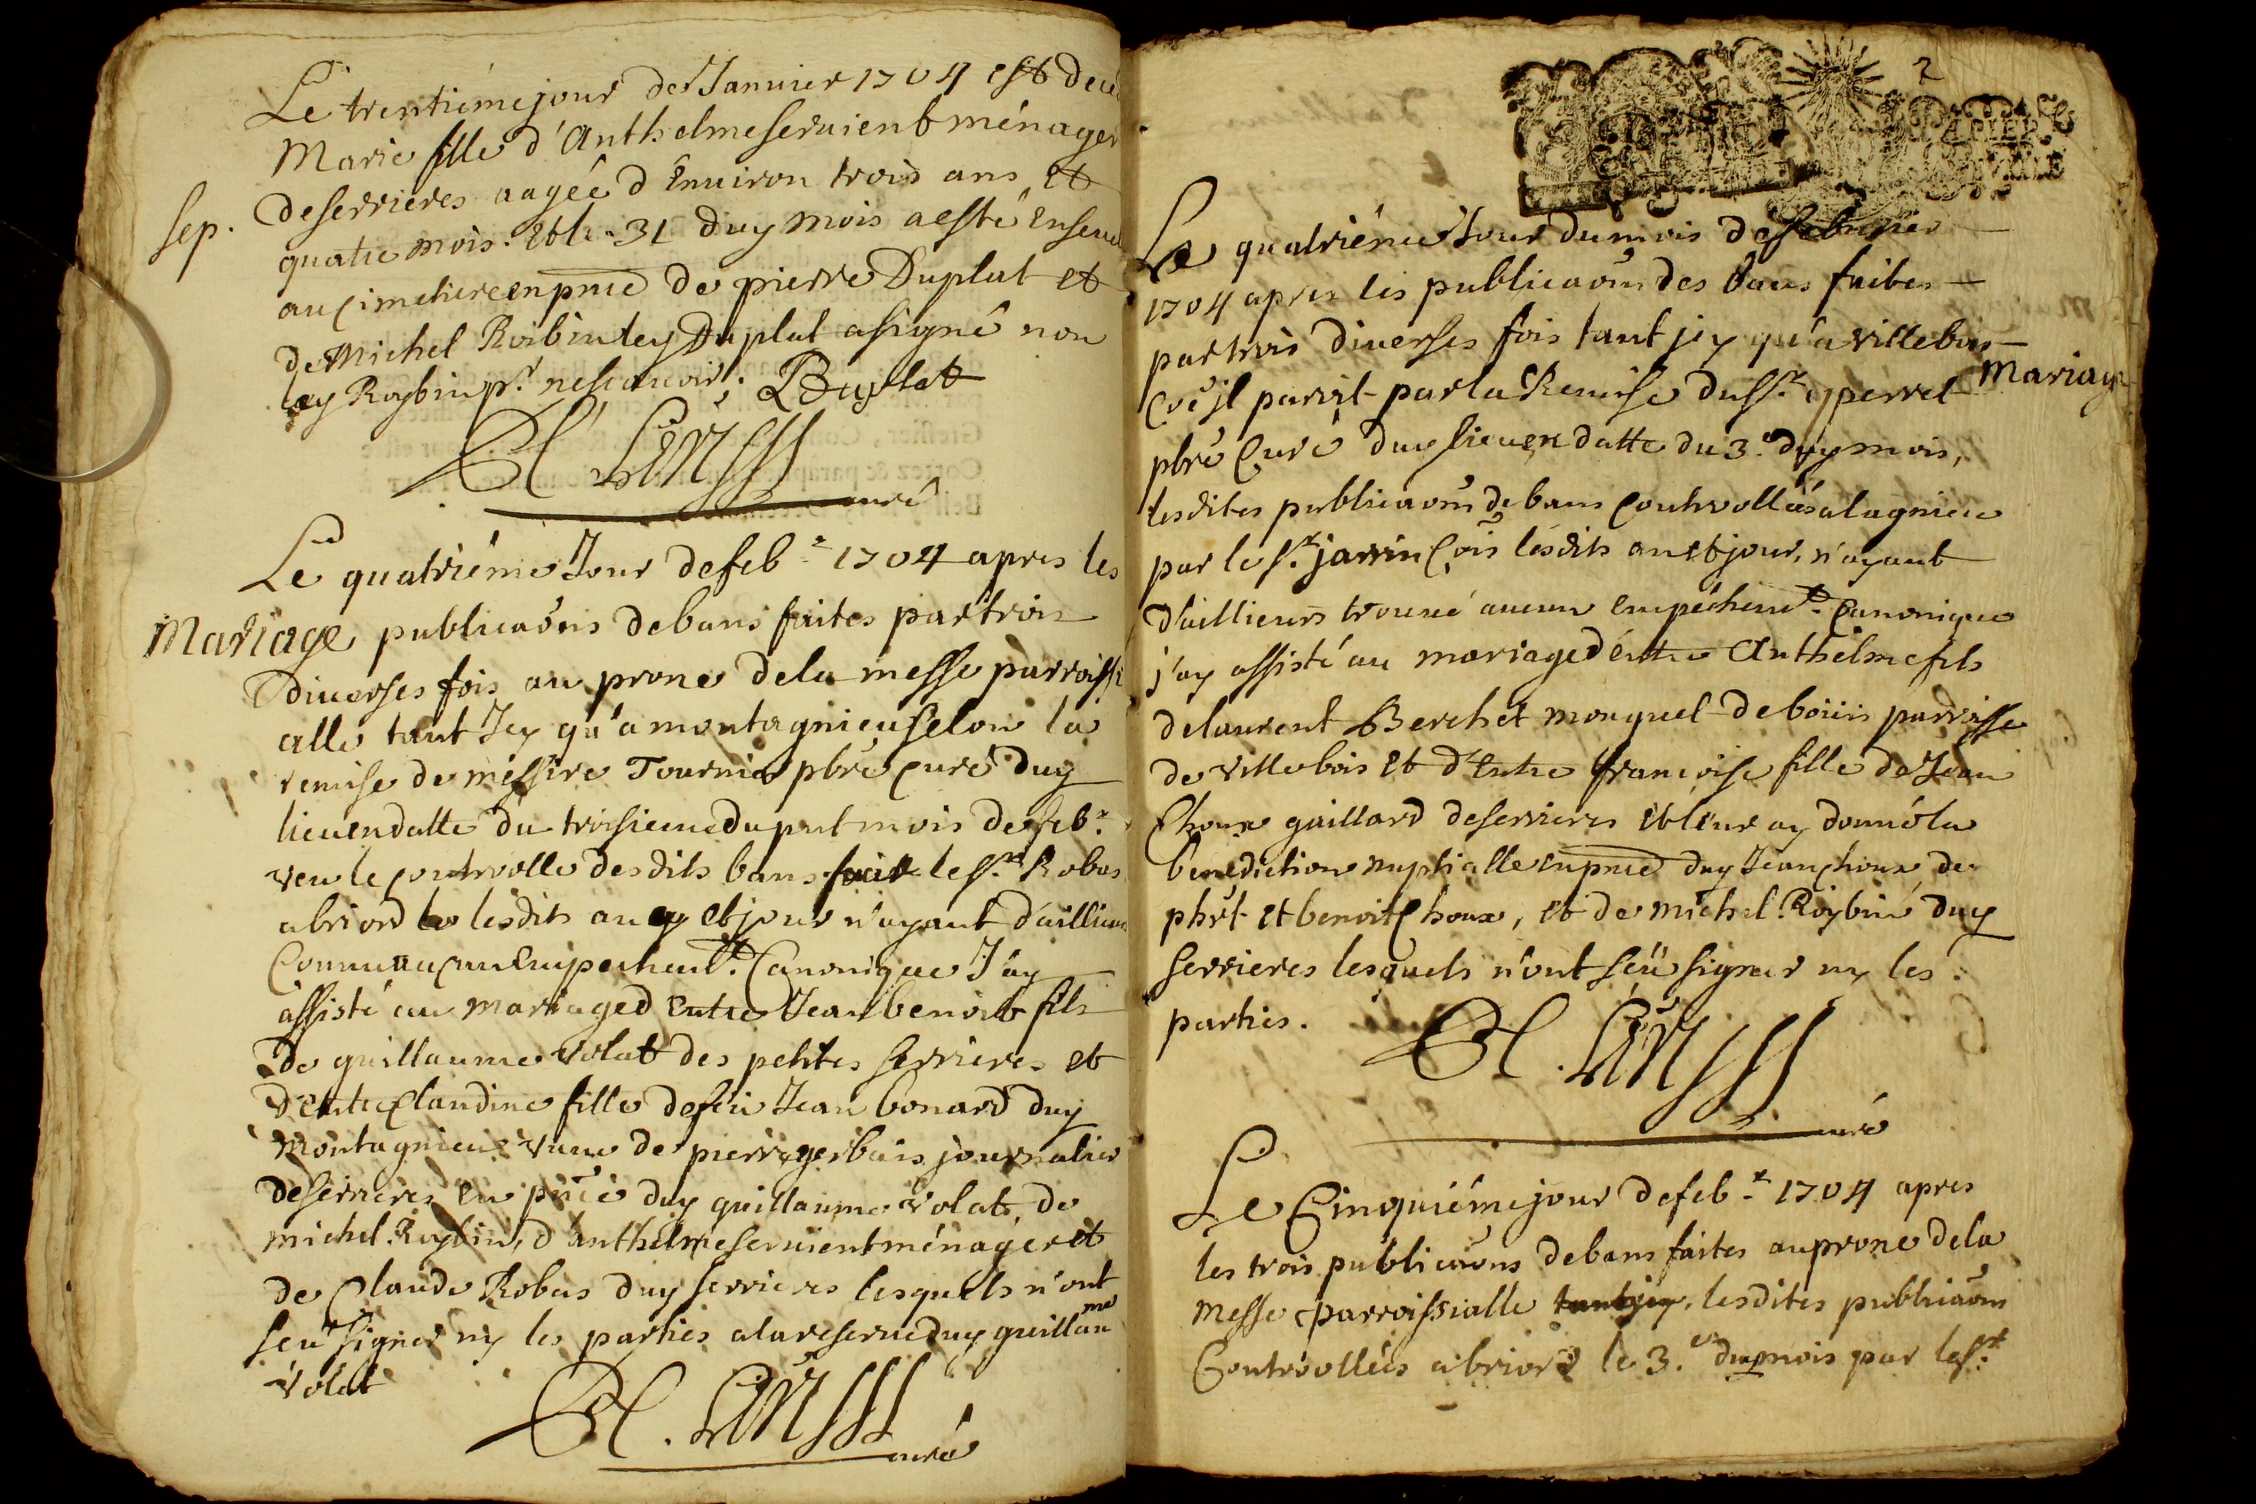 Le trentiéme jour de Januier 1704 est dece
Marie fille d'Anthelme seruient ménager
sep.
de serrieres aagée d'Enuiron trois ans et
quatre mois. Et le 31 duy mois a esté Enseue
au cimetiere en pnce de pierre Duplat et
de Michel Roibin ley Duplat a signé non
ley Roybin pr. ne scauoir. Duplat
curé
Le quatriéme Jour de feb.r 1704 apres les
Mariage
publicaons de bans faites par trois
diuerses fois au prone de la messe parroissi
alle tant Jcy qu'a montagnieu selon la
remise de messire Tournier pbre curé duy
lieu en datte du troisieme du pnt mois de feb.r
veu le controlle desdits bans fait le sr. Robas
a briord le lesdits an et jour n'ayant d'aillieurs
Connu aucun Empechent. Canonique J'ay
assisté au mariage d'Entre Jean benoit fils
de guillaume volat des petites serrieres et
d'Entre Claudine fille de feu Jean bonard duy
montagnieu vuue de pierre gerbais journalier
de serrieres en pnce duy guillaume volat, de
michel Roybin, d'anthelme seruient ménager et
de Claude Robas duy serrieres lesquels n'ont
seu signer ny les parties a la reserue duy guillaume
volat
curé
2
Le quatriéme Jour du mois de februier
1704 apres les publicaons des bans faites
par trois diuerses fois tant jcy qu'a villebois
Mariage
co'e jl paroit par la Remise du sr. perret
pbre Curé duy lieu en datte du 3.e duy mois,
lesdites publicaons de bans controllées a lagnieu
par le sr. jarrin Cois lesdits an et jour, n'ayant
d'aillieurs trouué aucun empéchent. Canonique
j'ay assisté au mariage d'éntre Anthelme fils
de laurent Berchet mouquet de boüis parroisse
de villebois Et d'Entre françoise fille de Jean
Choux gaillard de serrieres et leur ay donné la
benediction nuptialle en pnce duy Jean choux de
phet et benoit Choux, et de michel Roybin duy
serrieres lesquels n'ont seü signer ny les
parties.
curé
Le Cinquiéme jour de feb.r 1704 apres
les trois publicaons de bans faites au prone de la
messe parroissialle tant jcy, lesdites publicaons
Controollées a briord le 3.e du mois par le sr.